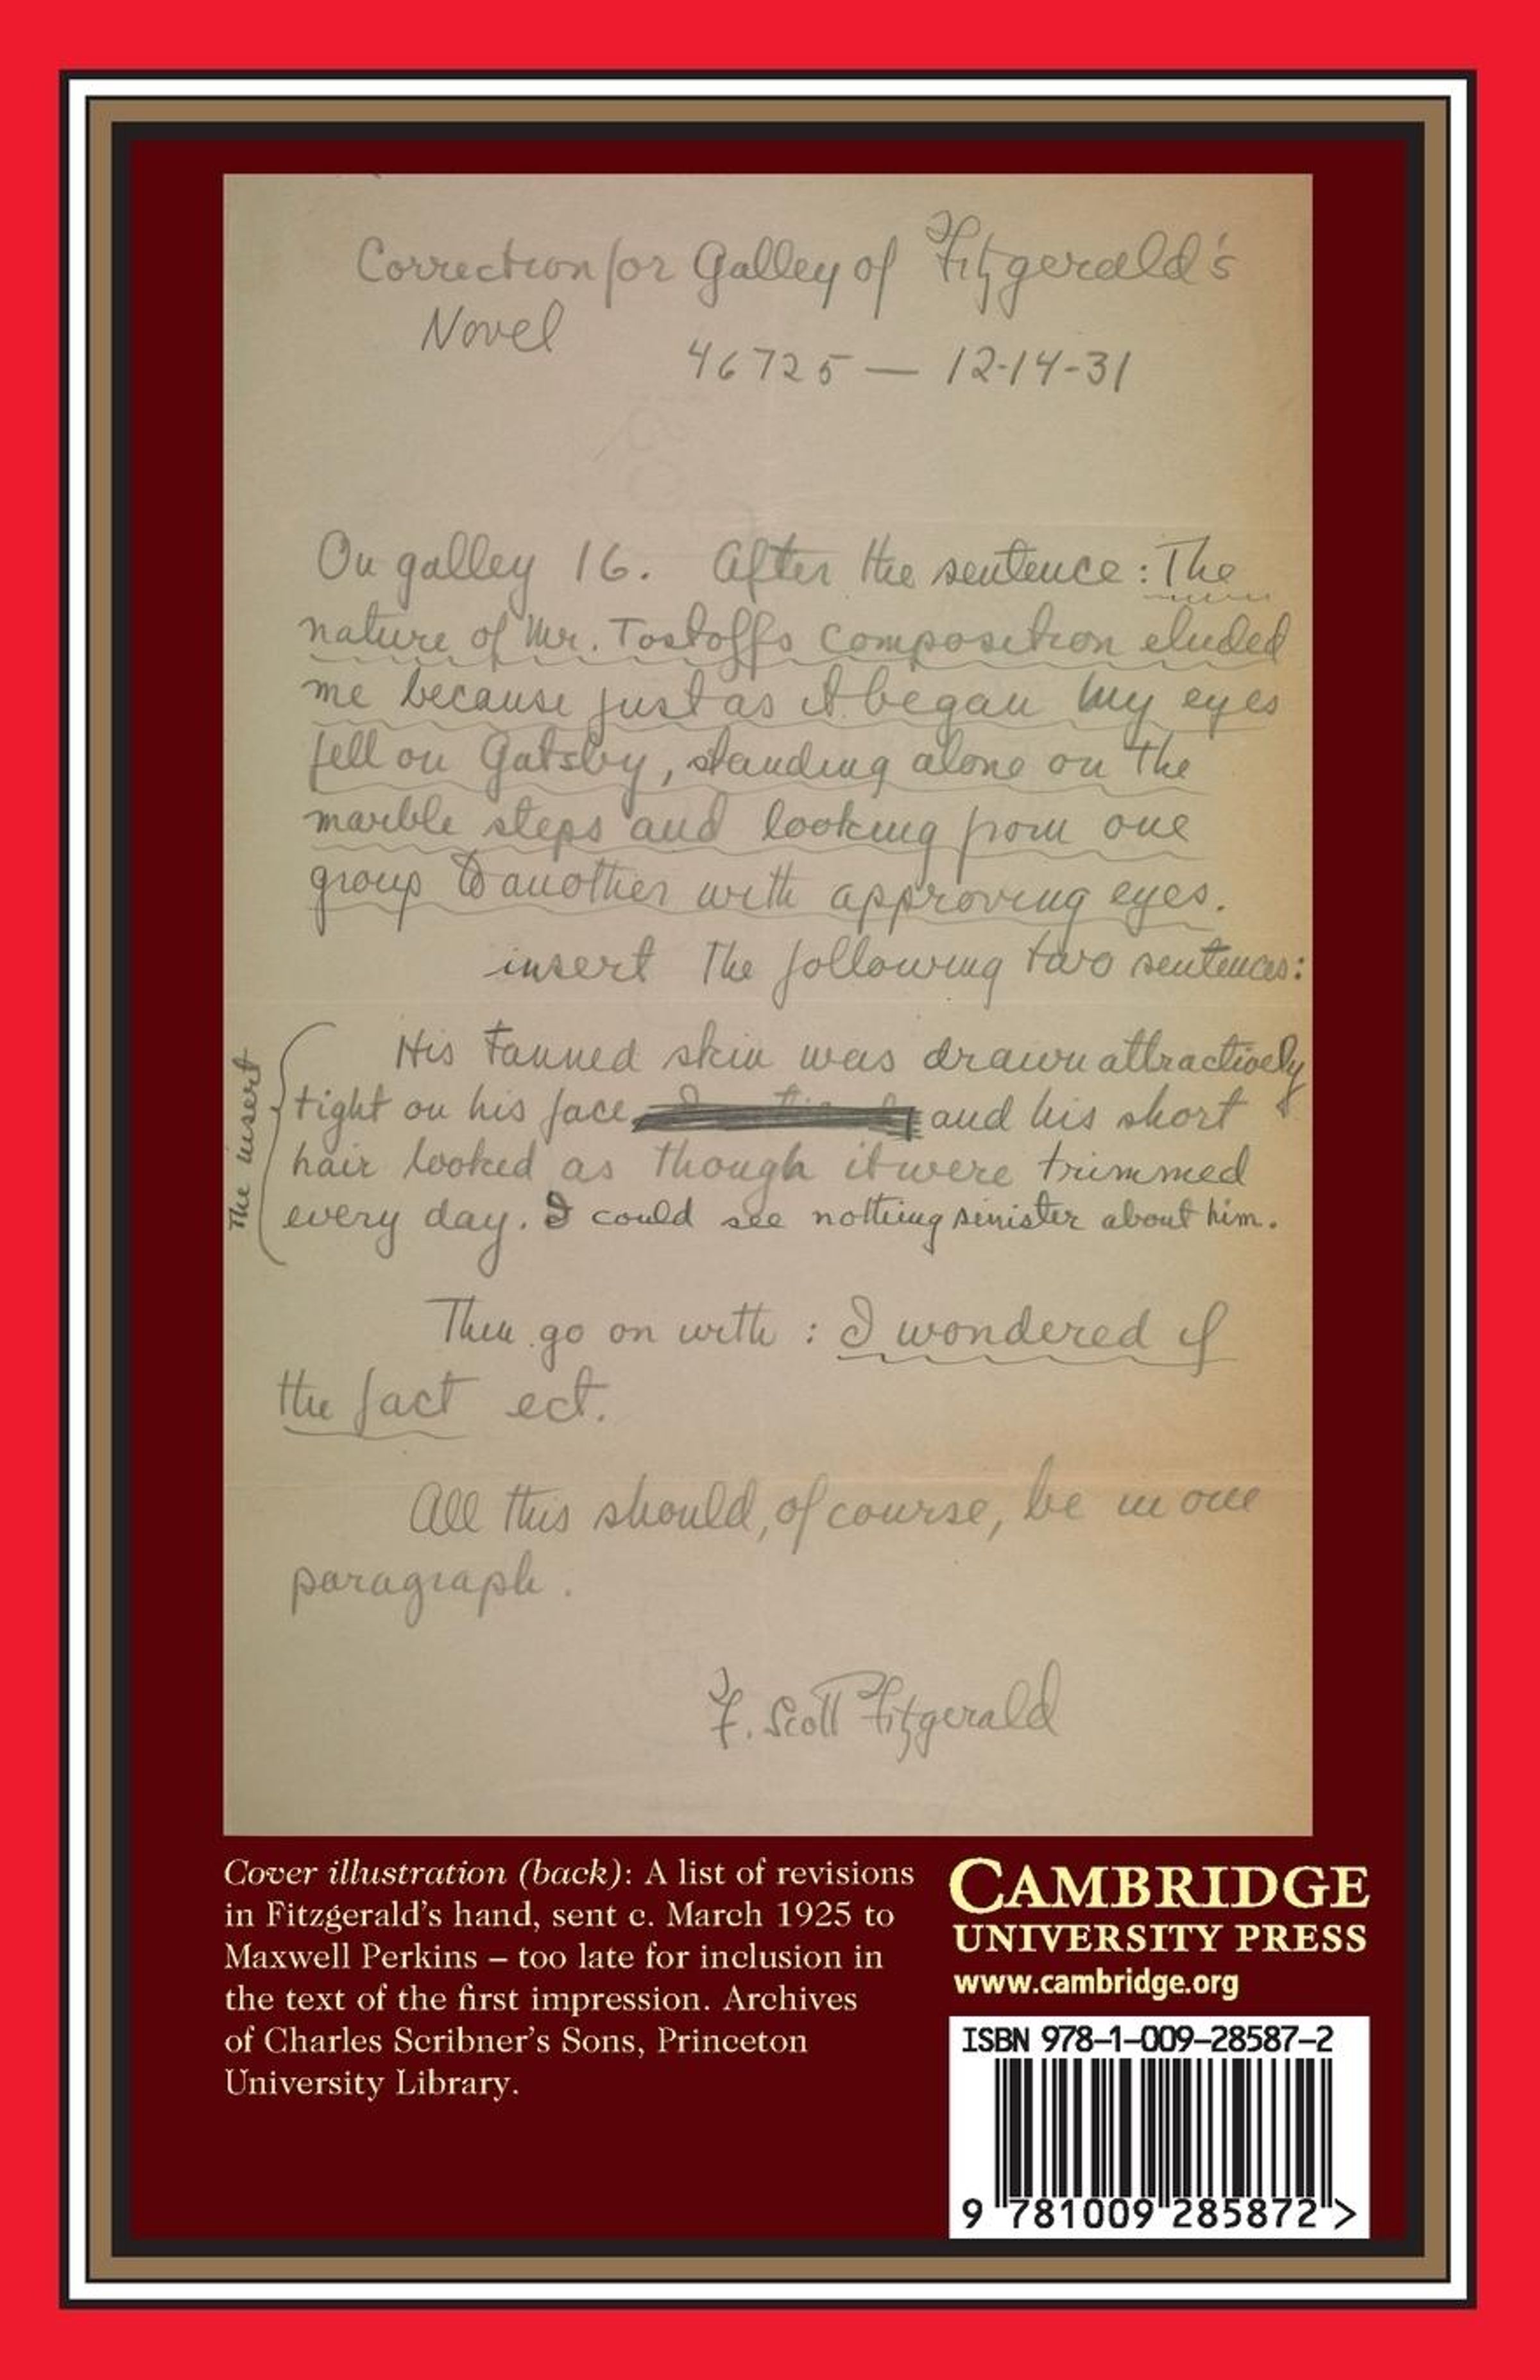 Correction for Galley of Fitzgerald's
Novel
46725 — 12-14-31
On galley 16. After the sentence: The
nature of Mr. Tostoffs composition eluded
me because just as it began my eyes
fell on Gatsby, standing alone on the
marble steps and looking from one
group to another with approving eyes.
insert the following two sentences:
The insert
His tanned skin was drawn attractively
tight on his face and his short
hair looked as though it were trimmed
every day. I could see nothing sinister about him.
Then go on with: I wondered if
the fact ect.
All this should, of course, be in one
paragraph.
F. Scott Fitzgerald
Cover illustration (back): A list of revisions
in Fitzgerald's hand, sent c. March 1925 to
Maxwell Perkins – too late for inclusion in
the text of the first impression. Archives
of Charles Scribner's Sons, Princeton
University Library.
CAMBRIDGE
UNIVERSITY PRESS
www.cambridge.org
ISBN 978-1-009-28587-2
9 781009 285872 >